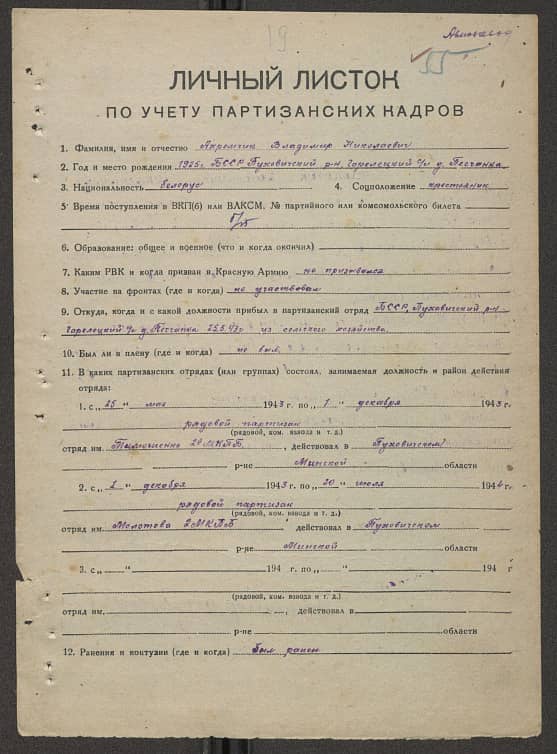 19
55
ЛИЧНЫЙ ЛИСТОК
ПО УЧЕТУ ПАРТИЗАНСКИХ КАДРОВ
1. Фамилия, имя и отчество Якремчик Владимир Николаевич
2. Год и место рождения 1925г. БССР Пуховичский р-н Горелецкий с/с д. Песчанка
3. Национальность белорус 4. Соцположение крестьянин
5 Время поступления в ВКП(б) или ВЛКСМ, № партийного или комсомольского билета
б/п
6. Образование: общее и военное (что и когда окончил)
7. Каким РВК и когда призван в Красную Армию не призывался
8. Участие на фронтах (где и когда) не участвовал
9. Откуда, когда и с какой должности прибыл в партизанский отряд БССР, Пуховичский р-н
Горелецкий с/с д. Песчанка 25.5.43г. из сельского хозяйства
10. Был ли в плену (где и когда) не был
11. В каких партизанских отрядах (или группах) состоял, занимаемая должность и район действия
отряда:
1. с „25 “ мая 1943 г. по „1 “ декабря 1943 г.
рядовой партизан
(рядовой, ком. взвода и т. д.)
отряд им. Тимошенко 2й МКПБ, действовал в Пуховичском
р-не Минской области
2. с „2 “ декабря 1943 г. по „20 “ июля 1944 г.
рядовой партизан
(рядовой, ком. взвода и т. д.)
отряд им. Молотова 2МКПБ действовал в Пуховичском
р-не Минской области
3. с „ “ 194 г. по „ “ 194 г
(рядовой, ком. взвода и т. д.)
отряд им. , действовал в
р-не области
12. Ранения и контузии (где и когда) был ранен